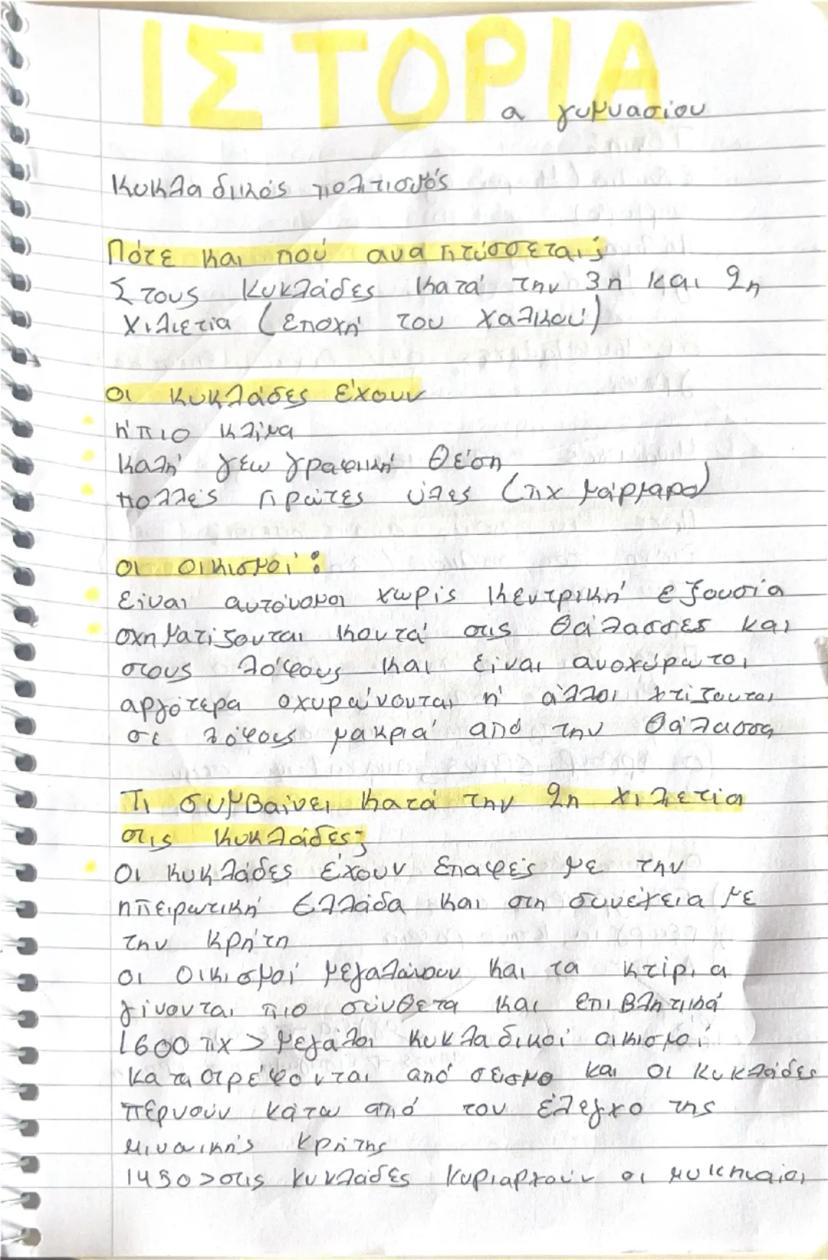 ΙΣΤΟΡΙΑ
α γυμνασίου
Κυκλαδικός πολιτισμός
Πότε και πού αναπτύσσεται;
Στους Κυκλάδες κατά την 3η και 2η
χιλιετία (εποχή του χαλκού)
Οι κυκλάδες έχουν
ήπιο κλίμα
καλή γεωγραφική θέση
πολλές πρώτες ύλες (πχ μάρμαρο)
οι οικισμοί:
είναι αυτόνομοι χωρίς κεντρική εξουσία
σχηματίζονται κοντά στις θάλασσες και
στους λόφους και είναι ανοχύρωτοι
αργότερα οχυρώνονται ή άλλοι χτίζονται
σε λόφους μακριά από την θάλασσα
Τι συμβαίνει κατά την 2η χιλιετία
στις κυκλάδες;
Οι κυκλάδες έχουν επαφές με την
ηπειρωτική Ελλάδα και στη συνέχεια με
την κρήτη
οι οικισμοί μεγαλώνουν και τα κτίρια
γίνονται πιο σύνθετα και επιβλητικά
1600 πχ > μεγάλοι κυκλαδικοί οικισμοί
καταστρέφονται από σεισμο και οι κυκλάδες
πέρνουν κάτω από τον έλεγχο της
μινωικής κρήτης
1450 > στις κυκλάδες κυριαρχούν οι μυκηναίοι